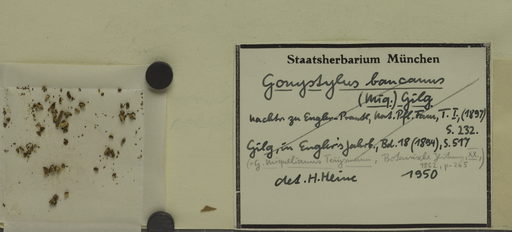 Staatsherbarium München
Gonystylus bancanus
(Miq.) Gilg
Nachtr. zu Engler-Prantl, Nat. Pfl. Fam., T. I, (1897)
S. 232.
Gilg, in Engler's Jahrb., Bd. 18 (1894), S. 517
(= G. miquelianus Teijsmann, Botanische Zeitung, XX,
1862, p. 265
det. H. Heine 1950